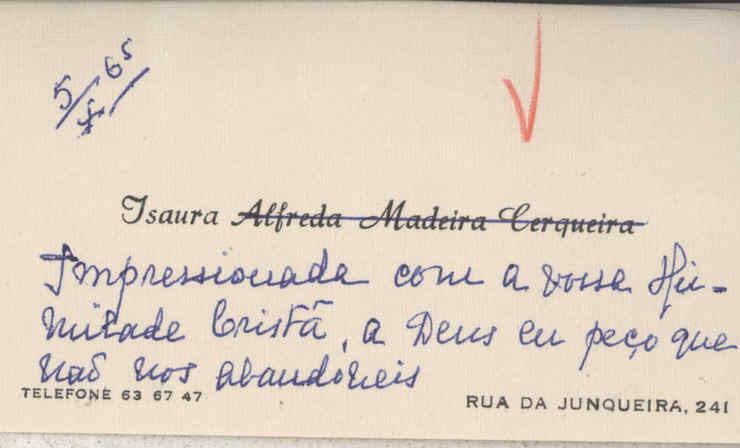 5/X/65
Isaura Alfreda Madeira Cerqueira
Impressionada com a vossa Hu-
mildade Cristã, a Deus eu peço que
não nos abandoneis
TELEFONE 63 67 47
RUA DA JUNQUEIRA, 241